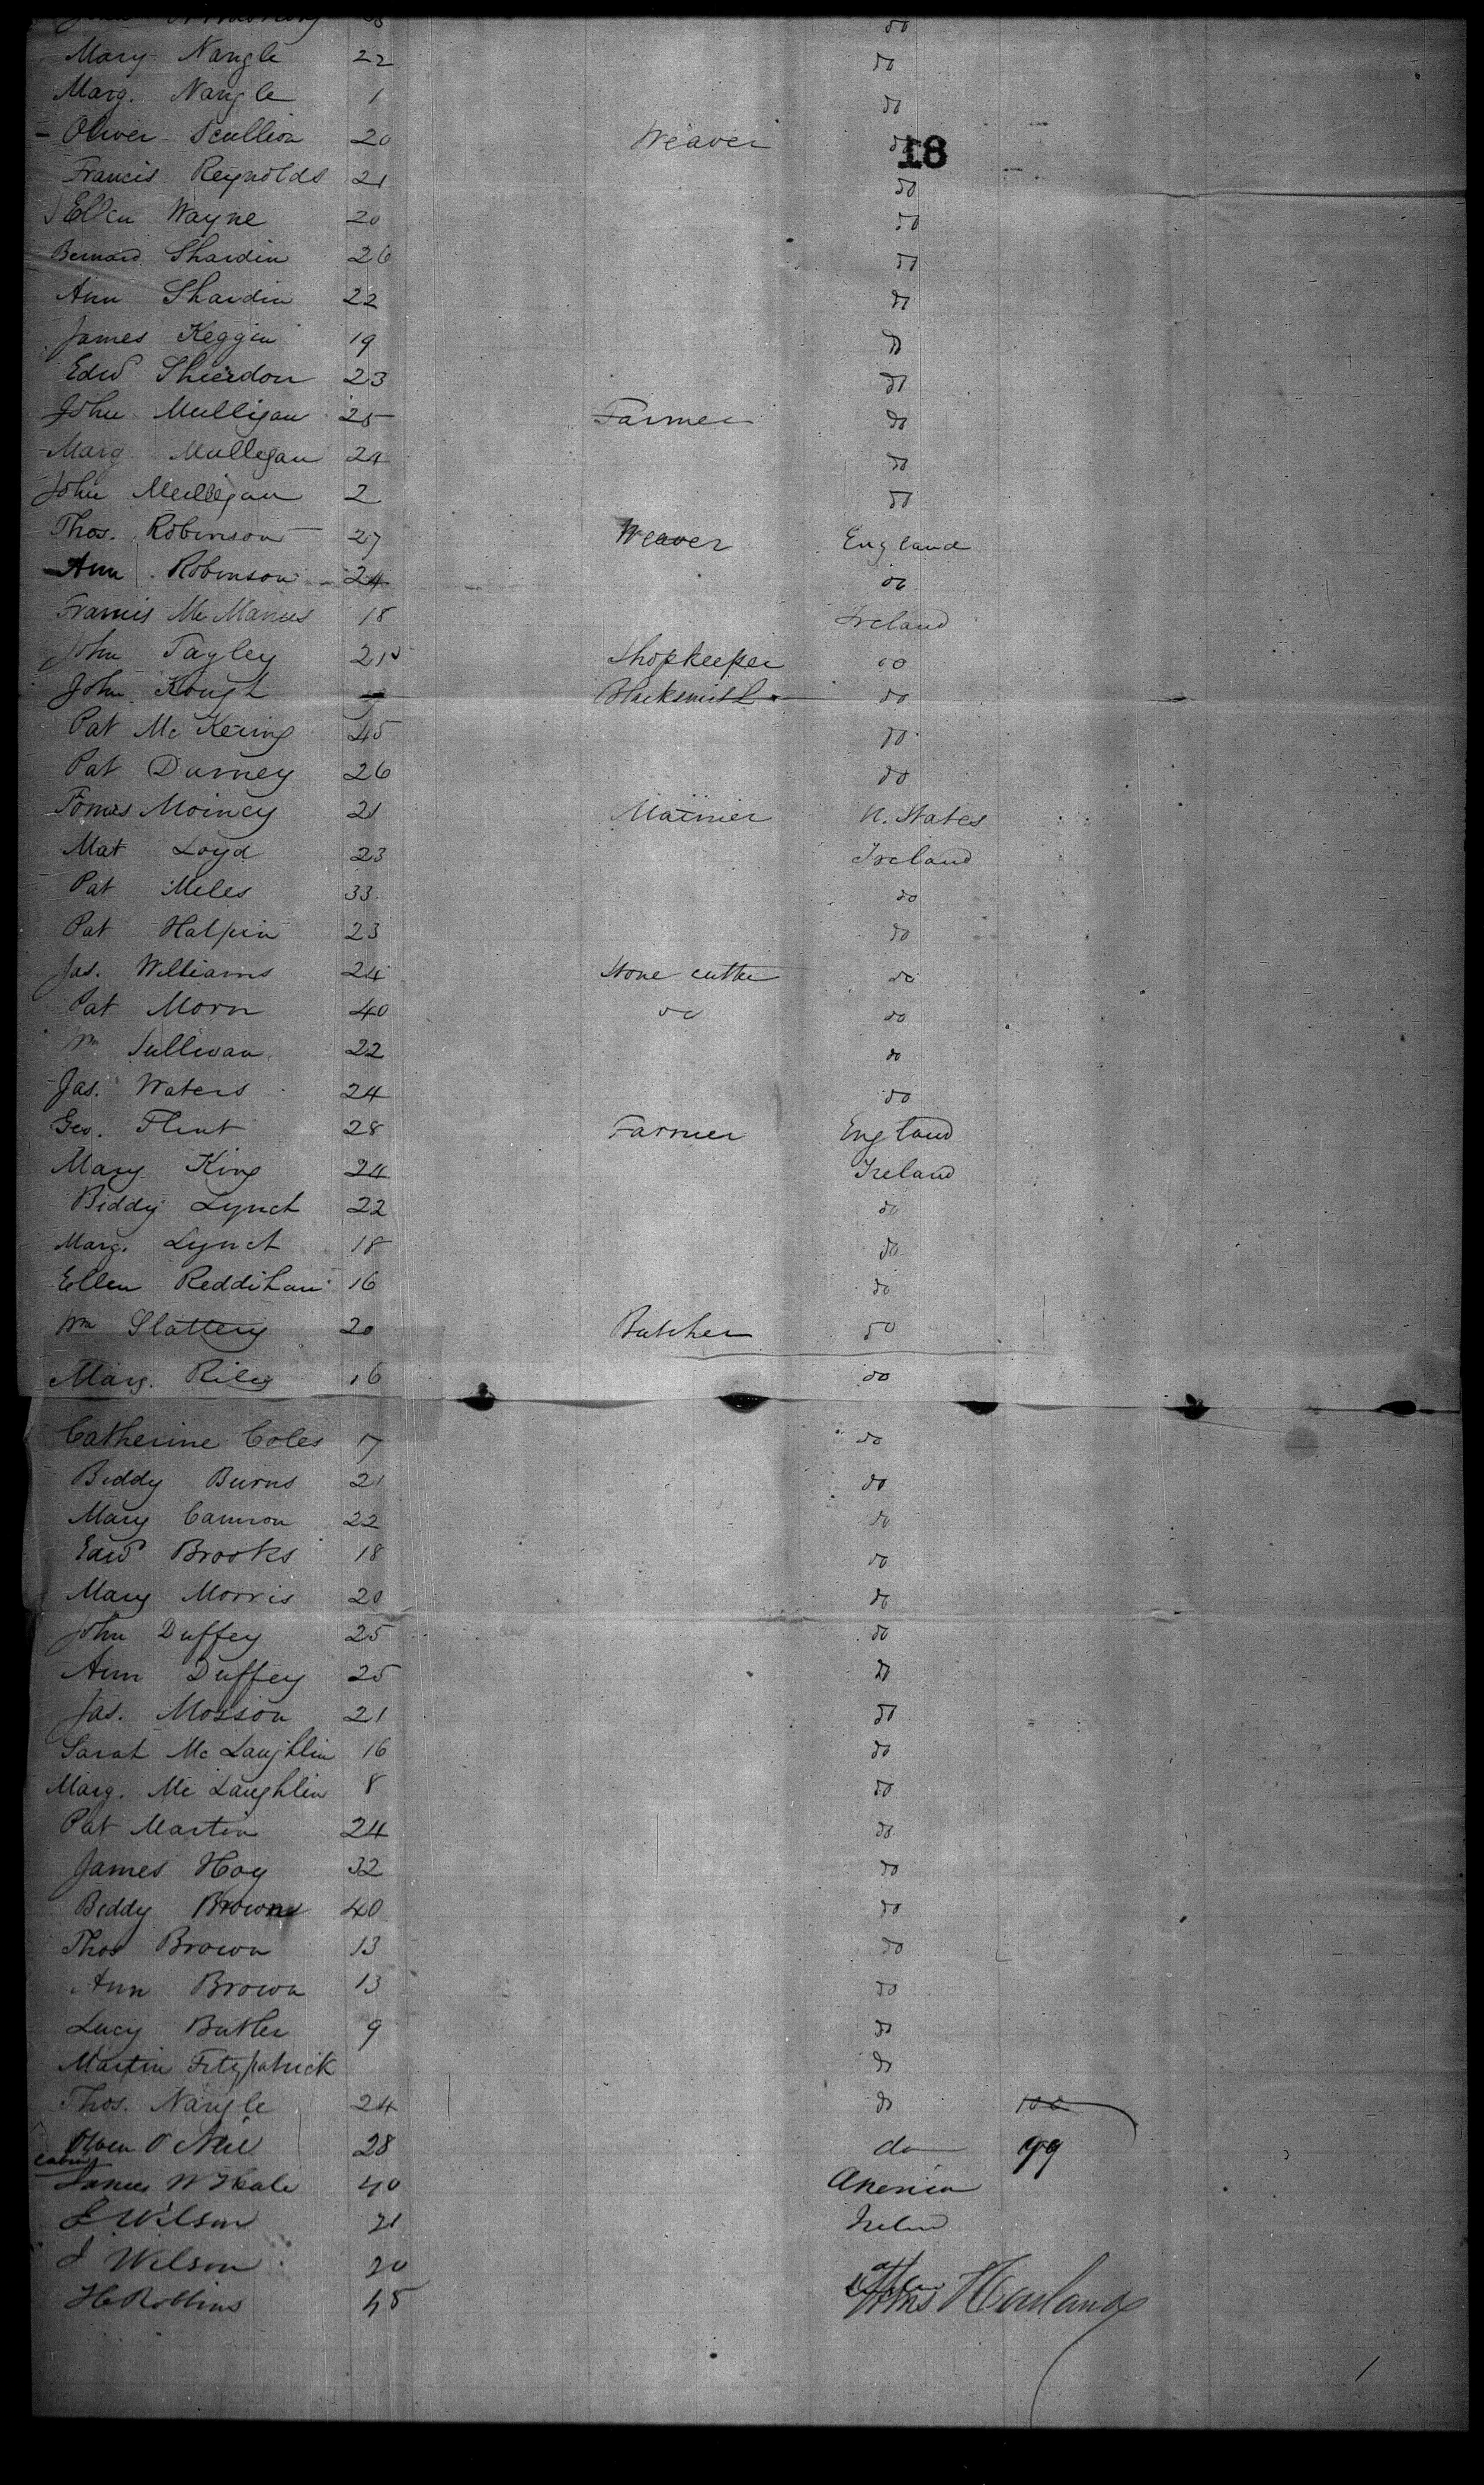 Mary Nangle 22 do
Marg. Nangle 1 do
Oliver Scullion 20 Weaver do
18
Francis Reynolds 21 do
Ellen Wayne 20 do
Bernard Shardin 26 do
Ann Shardin 22 do
James Keggin 19 do
Edwd Sheridon 23 do
John Mulligan 25 Farmer do
Marg Mulligan 24 do
John Mulligan 2 do
Thos. Robinson 27 Weaver England
Ann Robinson 24 do
Francis McManus 18 Ireland
John Tagley 21 Shopkeeper do
John Kough Blacksmith do
Pat McKering 45 do
Pat Durney 26 do
Moincy 21 Marinier U. States
Mat Loyd 23 Ireland
Pat Miles 33 do
Pat Halpin 23 do
Jas. Williams 24 Stone cutter do
Pat Morn 40 do do
Wm Sullivan 22 do
Jas. Waters 24 do
Geo. Flint 28 Farmer England
Mary King 24 Ireland
Biddy Lynch 22 do
Marg. Lynch 18 do
Ellen Reddihan 16 do
Wm Slattery 20 Butcher do
Marg. Riley 16 do
Catherine Coles 17 do
Biddy Burns 21 do
Mary Camron 22 do
Edwd Brooks 18 do
Mary Morris 20 do
John Duffey 25 do
Ann Duffey 25 do
Jas. Mosson 21 do
Sarah McLaughlin 16 do
Marg. McLaughlin 8 do
Pat Martin 24 do
James Hoy 32 do
Biddy Browne 40 do
Thos Brown 13 do
Ann Brown 13 do
Lucy Butler 9 do
Martin Fitzpatrick do
Thos. Nangle 24 do 100
Owen O Neil 28 do 99
Cabin
James W 40 America
E Wilson 21 Ireland
J Wilson 20
H Robbins 45